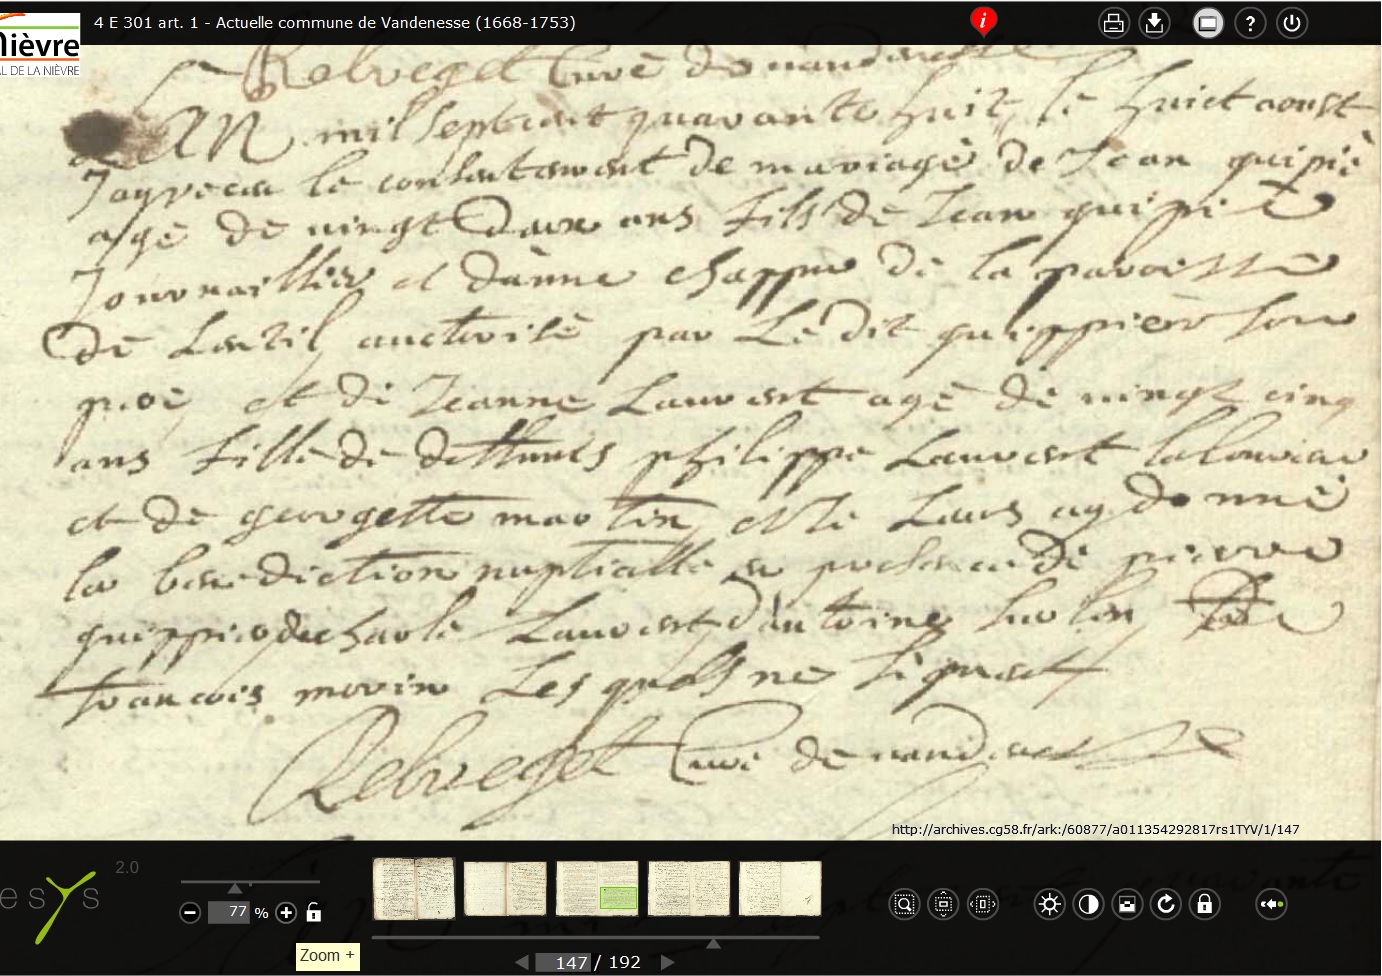 4 E 301 art. 1 - Actuelle commune de Vandenesse (1668-1753)
Nièvre
AL DE LA NIÈVRE
Rebreget Curé de vandenesse
LAN mil sept cent quarante huit le huict aoust
Jay receu le consentement de mariage de Jean quipié
agé de vingt deux ans fils de Jean quipié
Journaillier et danne chappue de la paroisse
De Lanti auctorisé par Le dit quippier son
pere et de Jeanne Laurent agé de vingt cinq
ans fille de deffunts philippe Laurent laboureur
et de georgette martin et je Leurs ay donné
la benediction nuptialle en presence de pierre
quippier de charle Laurent d'antoine de
francois morin Les quels ne signent
Rebreget Curé de vandenesse
http://archives.cg58.fr/ark:/60877/a011354292817rs1TYV/1/147
esys 2.0
77 %
Zoom +
147 / 192